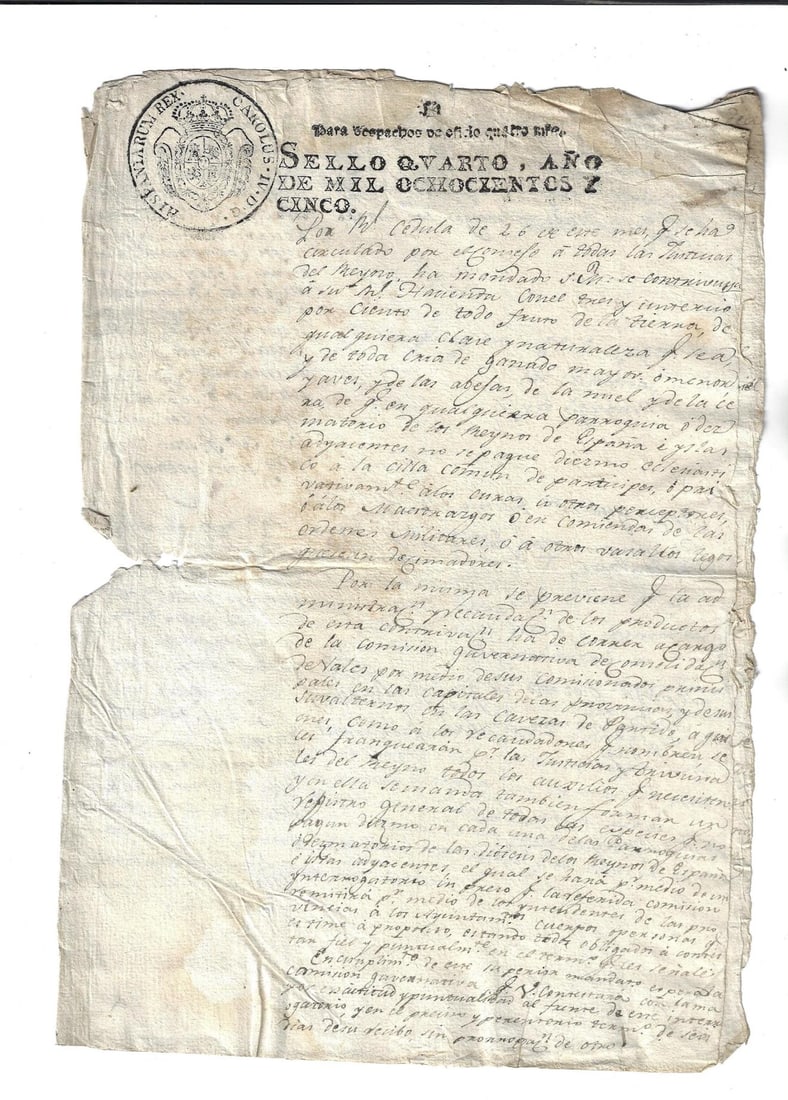 HISPANIARUM REX. CAROLUS. IV. D. G.
Para despachos de oficio quatro mrs.
SELLO QVARTO, AÑO
DE MIL OCHOCIENTOS Y
CINCO.
Por Rl Cedula de 26 de este mes, q. se ha
circulado por el consejo á todas las Justicias
del Reyno, ha mandado S. M. se contribuya
á su Rl. Hacienda con el tres y un tercio
por ciento de todo fruto de la tierra, de
qualquiera clase y naturaleza q. sea,
y de toda cria de ganado mayor ó menor
y aves, y de las abejas, de la miel y de la ce
ra, de q. en qualquierra parroquia ó dez
matorio de los Reynos de España é yslas
adyacentes no se pague diezmo eclesiasti
co á la cilla comun de participes, ó pri
vativamte. á los curas, ú otros perceptores,
ó á los Maestrazgos ó encomiendas de las
ordenes Militares, ó á otros vasallos legos
que sean dezmadores.
Por la misma se previene q. la ad
ministran. y recaudan. de los productos
de esta contrivun. ha de correr a cargo
de la comision guvernativa de consolidan.
de Vales por medio de sus comisionados princi
pales en las capitales de las Provincias, y de sus
suvalternos en las cavezas de Partido, a quie
nes, como a los recaudadores q. nombren, se
les franquearán pr. las Justicias y Trivuna
les del Reyno todos los auxilios q. necesiten
y en ella se manda tambien formar un
registro general de todas las especies q. no
pagan diezmo en cada una de las Parroquias
ó dezmatorios de las Diócesis de los Reynos de España
é islas adyacentes, el qual se hará pr. medio de un
interrogatorio impreso q. la referida comision
remitirá pr. medio de los yntendentes de las pro
vincias á los Ayuntamtos. cuerpos ó personas q.
estime á proposito, estando todos obligados á contes
tar fiel y puntualmte. en el termo. q. les señale.
En cumplimto. de este soberano mandato espera la
comision guvernativa q. V. contestará con la ma
yor exactitud y puntualidad al frente de este interr
ogatorio, y en el preciso y perentorio termo. de seis
dias de su recibo, sin prorrogan. de otro.